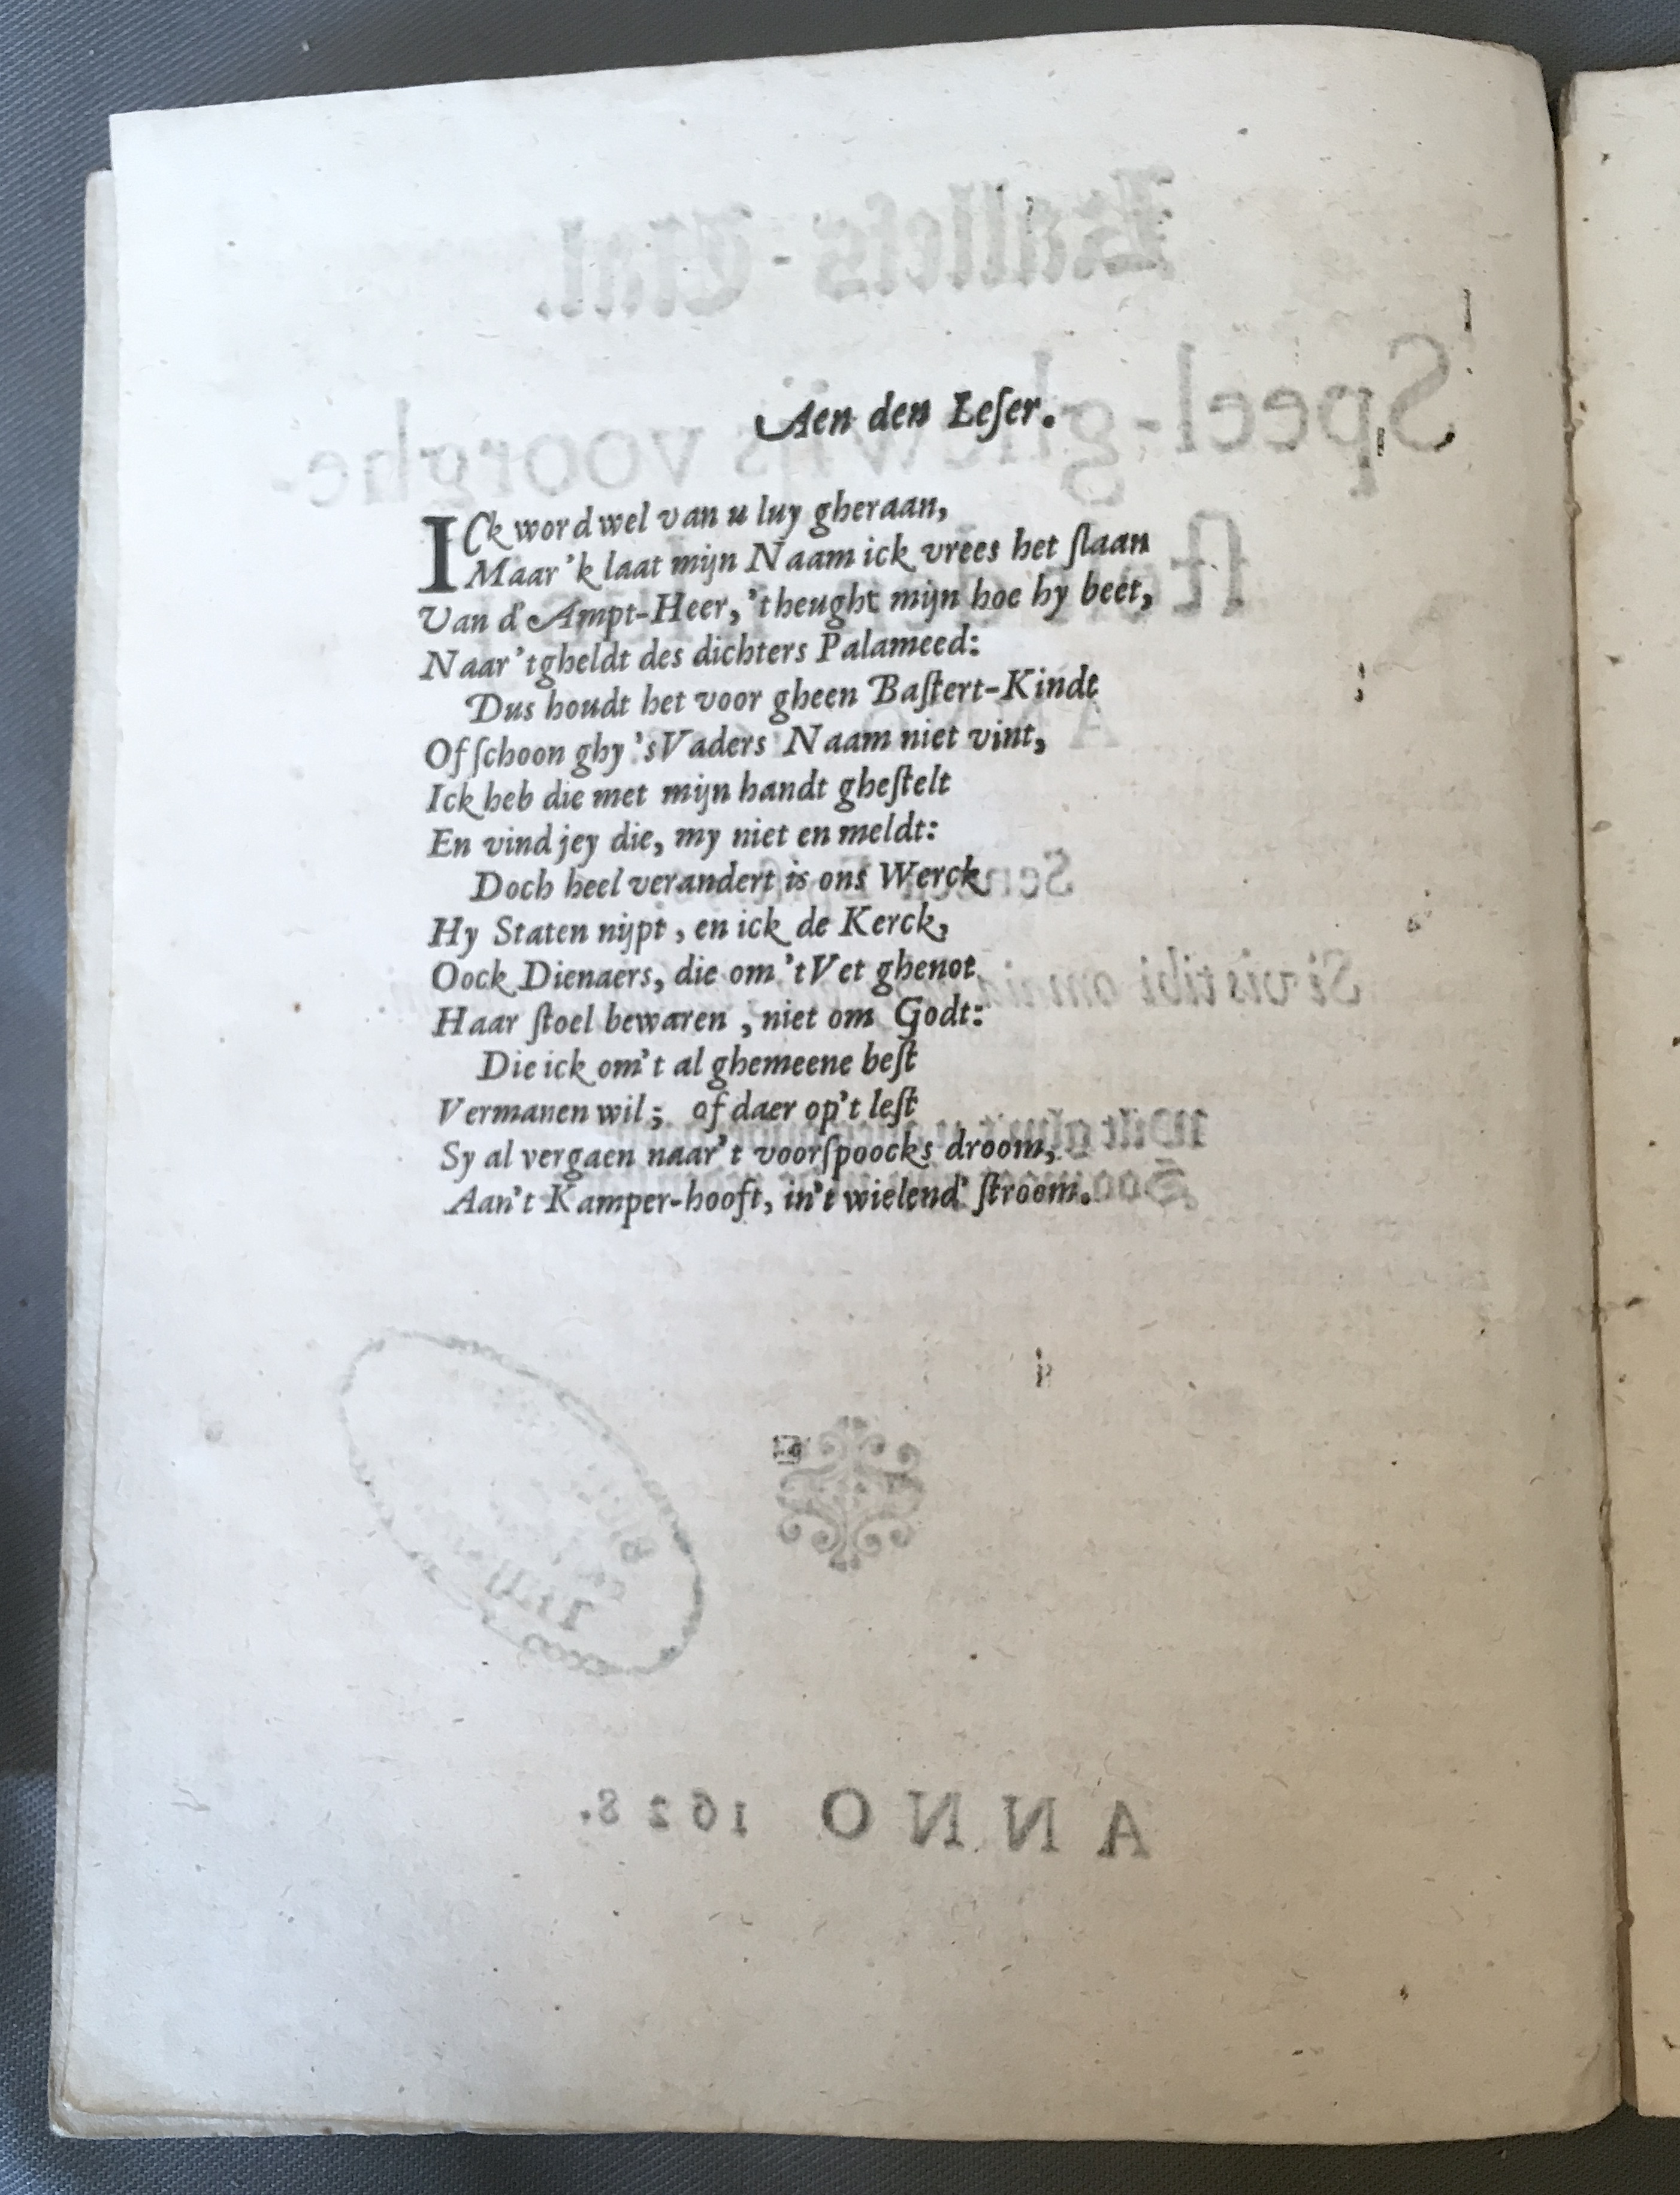 Aen den Leſer.
ICk word wel van u luy gheraan,
Maar 'k laat mijn Naam ick vrees het ſlaan
Van d'Ampt-Heer, 't heught mijn hoe hy beet,
Naar 't gheldt des dichters Palameed:
Dus houdt het voor gheen Baſtert-Kindt
Of ſchoon ghy 's Vaders Naam niet vint,
Ick heb die met mijn handt gheſtelt
En vind jey die, my niet en meldt:
Doch heel verandert is ons Werck
Hy Staten nijpt, en ick de Kerck,
Oock Dienaers, die om 't Vet ghenot
Haar ſtoel bewaren, niet om Godt:
Die ick om't al ghemeene beſt
Vermanen wil; of daer op't leſt
Sy al vergaen naar't voorſpoocks droom,
Aan't Kamper-hooft, in't wielend' ſtroom.
ANNO 1628.